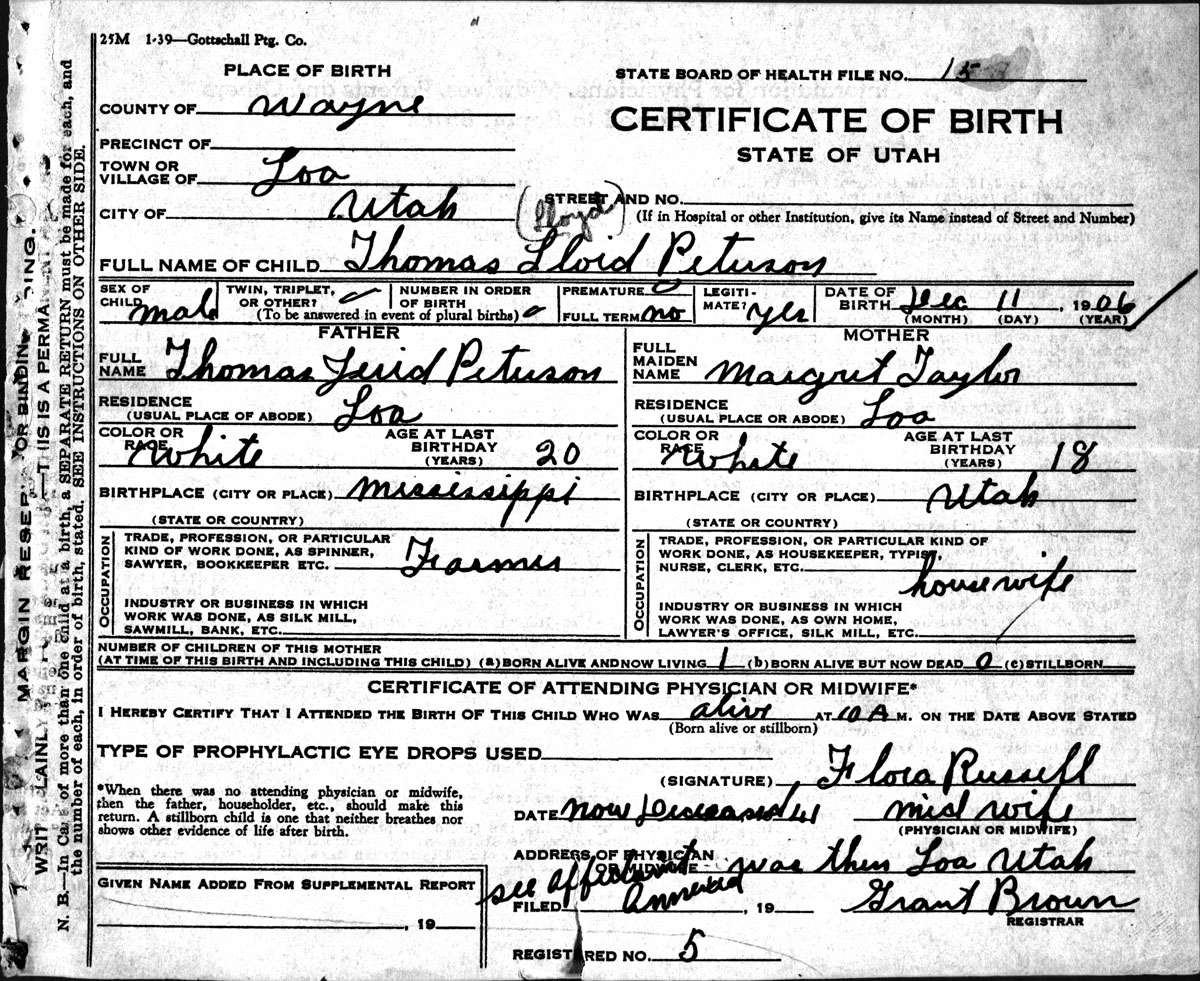 25M 1-39—Gottschall Ptg. Co.
PLACE OF BIRTH
STATE BOARD OF HEALTH FILE NO. 15
COUNTY OF Wayne
CERTIFICATE OF BIRTH
STATE OF UTAH
PRECINCT OF
TOWN OR VILLAGE OF Loa
CITY OF Utah
STREET AND NO.
(If in Hospital or other Institution, give its Name instead of Street and Number)
(Lloyd)
FULL NAME OF CHILD Thomas Lloid Peterson
SEX OF CHILD male
TWIN, TRIPLET, OR OTHER?
NUMBER IN ORDER OF BIRTH
(To be answered in event of plural births)
PREMATURE
FULL TERM no
LEGITIMATE? yes
DATE OF BIRTH Dec 11, 1906
(MONTH) (DAY) (YEAR)
FATHER
FULL NAME Thomas Peterson
RESIDENCE (USUAL PLACE OF ABODE) Loa
COLOR OR RACE White
AGE AT LAST BIRTHDAY (YEARS) 20
BIRTHPLACE (CITY OR PLACE) Mississippi
(STATE OR COUNTRY)
OCCUPATION
TRADE, PROFESSION, OR PARTICULAR
KIND OF WORK DONE, AS SPINNER,
SAWYER, BOOKKEEPER ETC. Farmer
INDUSTRY OR BUSINESS IN WHICH
WORK WAS DONE, AS SILK MILL,
SAWMILL, BANK, ETC.
MOTHER
FULL MAIDEN NAME Margret Taylor
RESIDENCE (USUAL PLACE OR ABODE) Loa
COLOR OR RACE White
AGE AT LAST BIRTHDAY (YEARS) 18
BIRTHPLACE (CITY OR PLACE) Utah
(STATE OR COUNTRY)
OCCUPATION
TRADE, PROFESSION, OR PARTICULAR KIND OF
WORK DONE, AS HOUSEKEEPER, TYPIST,
NURSE, CLERK, ETC. housewife
INDUSTRY OR BUSINESS IN WHICH
WORK WAS DONE, AS OWN HOME,
LAWYER'S OFFICE, SILK MILL, ETC.
NUMBER OF CHILDREN OF THIS MOTHER
(AT TIME OF THIS BIRTH AND INCLUDING THIS CHILD) (a) BORN ALIVE AND NOW LIVING 1 (b) BORN ALIVE BUT NOW DEAD 0 (c) STILLBORN
CERTIFICATE OF ATTENDING PHYSICIAN OR MIDWIFE*
I HEREBY CERTIFY THAT I ATTENDED THE BIRTH OF THIS CHILD WHO WAS alive AT 10 A M. ON THE DATE ABOVE STATED
(Born alive or stillborn)
TYPE OF PROPHYLACTIC EYE DROPS USED
(SIGNATURE) Flora Russell
*When there was no attending physician or midwife,
then the father, householder, etc., should make this
return. A stillborn child is one that neither breathes nor
shows other evidence of life after birth.
DATE now Deceased 41 mid wife
(PHYSICIAN OR MIDWIFE)
ADDRESS OF PHYSICIAN OR MIDWIFE was then Loa Utah
see affidavit Annexed
FILED , 19
Grant Brown
REGISTRAR
GIVEN NAME ADDED FROM SUPPLEMENTAL REPORT
, 19
REGISTERED NO. 5
—THIS IS A PERMA
N. B.—In Case of more than one child at a birth, a SEPARATE RETURN must be made for each, and
the number of each, in order of birth, stated. SEE INSTRUCTIONS ON OTHER SIDE.